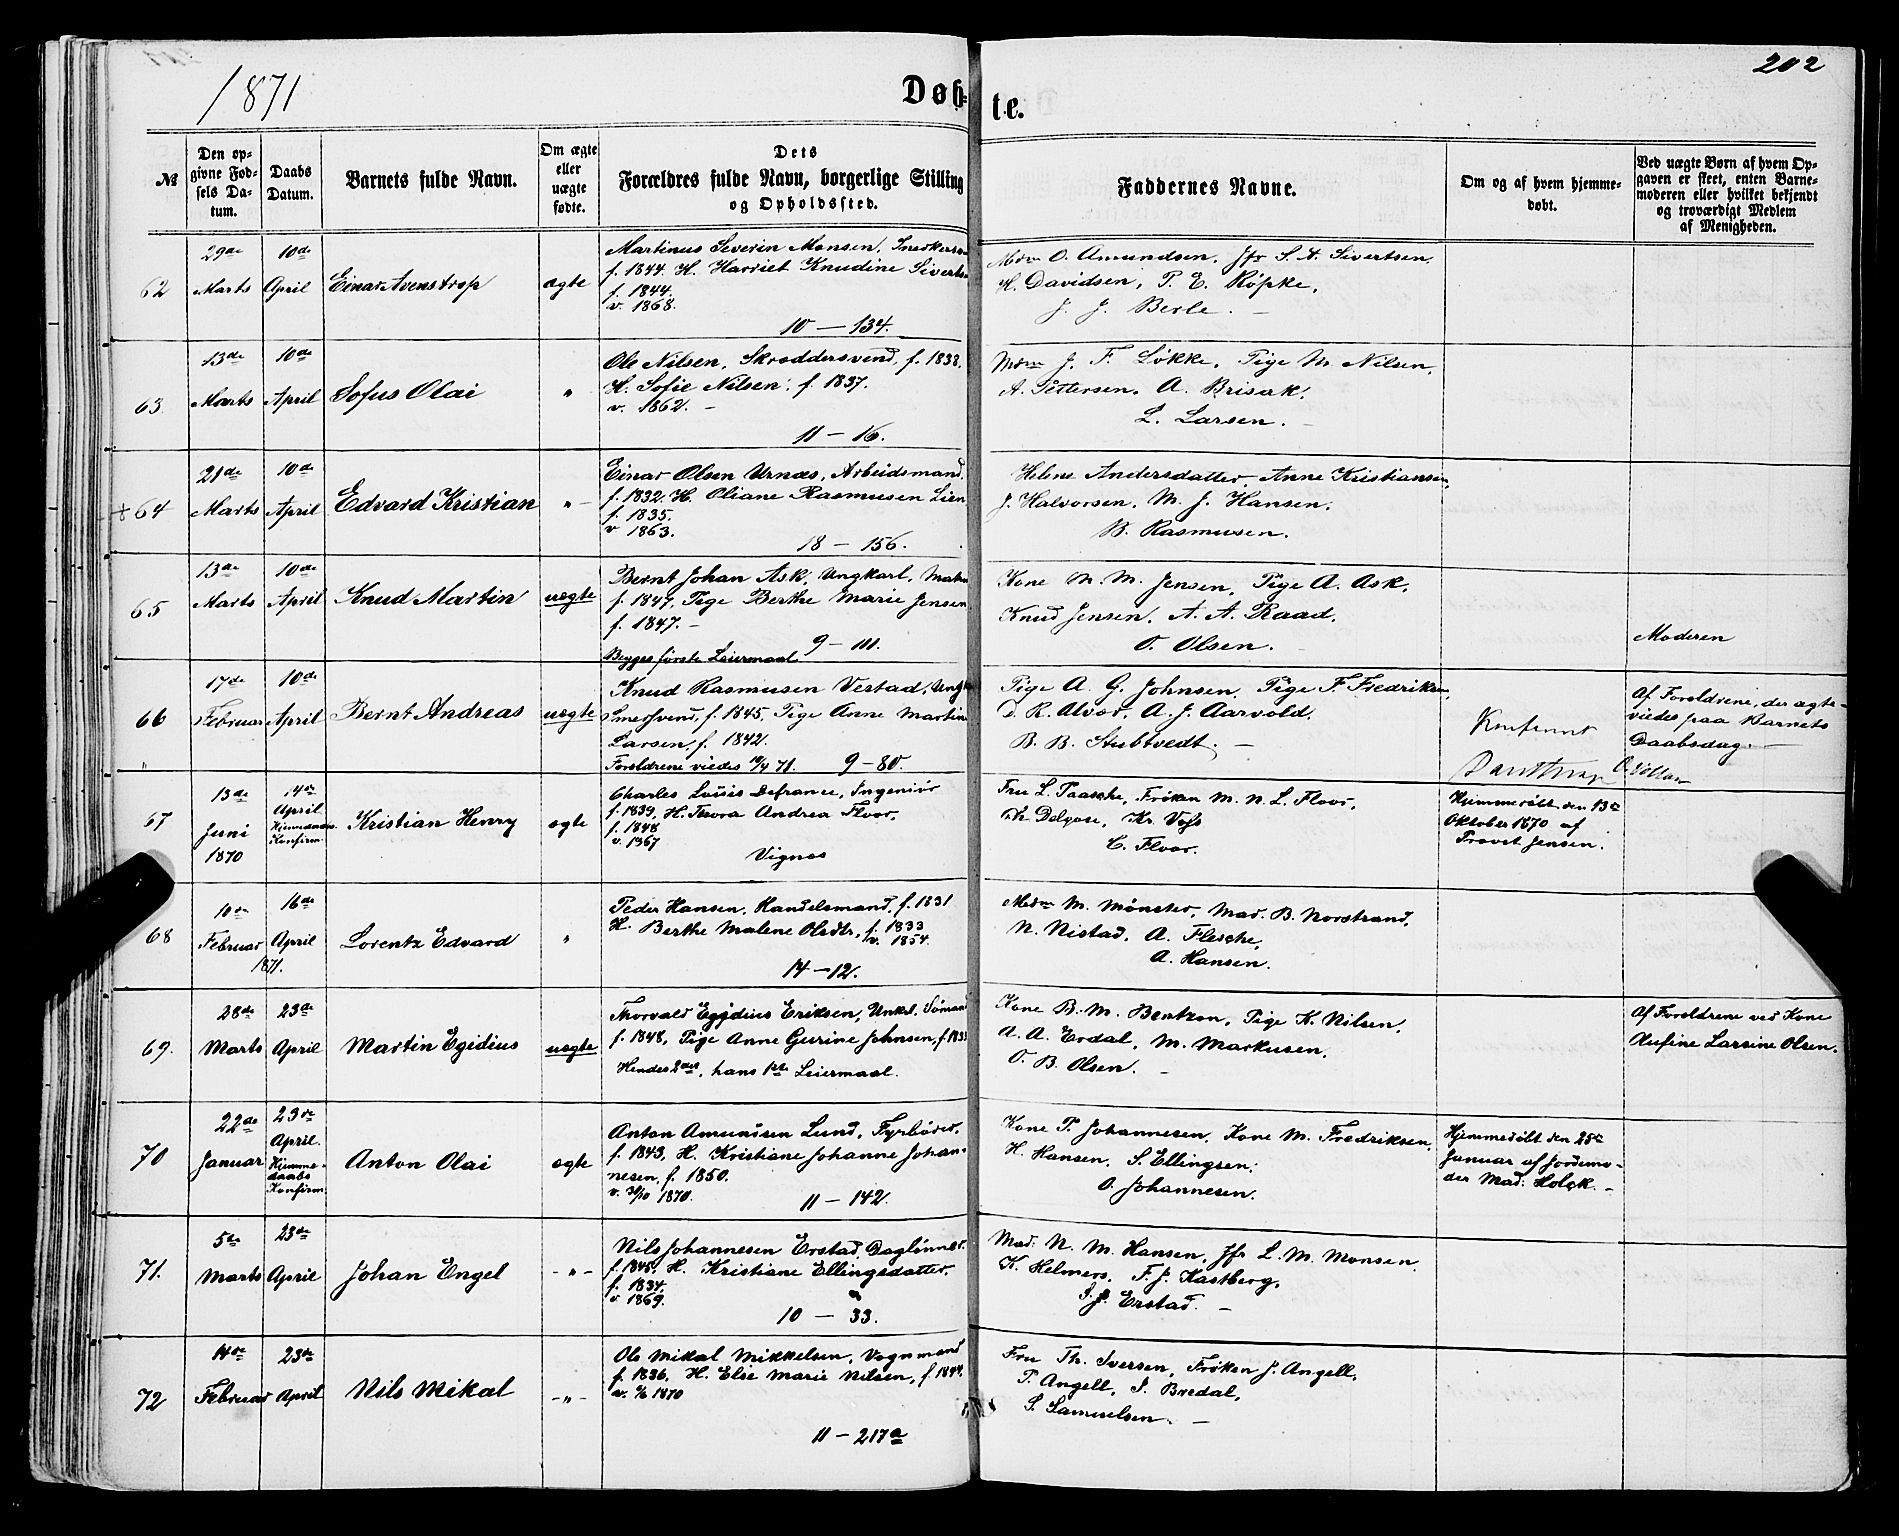 1871
202
Døb-
te.
№
Den op-
givne Fød-
sels Da-
tum.
Daabs
Datum.
Barnets fulde Navn.
Om ægte
eller
uægte
fødte.
Dets
Forældres fulde Navn, borgerlige Stilling
og Opholdssted.
Faddernes Navne.
Om og af hvem hjemme-
døbt.
Ved uægte Børn af hvem Op-
gaven er skeet, enten Barne-
moderen eller hvilket bekjendt
og troværdigt Medlem
af Menigheden.
62
29de
Marts
10de
April
Einar Avenstrop
ægte
Martinus Severin Monsen, Snedkersv
f. 1844. H. Harriet Knudine Siverts
f. 1844.
v. 1868.
10 — 134.
Mdm O. Amundsen, Jfr S. A. Sivertsen,
H. Davidsen, P. E. Röpke,
J. J. Berle. —
63
13de
Marts
10de
April
Sofus Olai
"
Ole Nilsen, Skræddersvend, f. 1838.
H. Sofie Nilsen, f. 1837.
v. 1862. —
11 — 16.
Mdm J. F. Løkke, Pige M. Nilsen,
A. Pettersen, A. Brisak,
L. Larsen. —
+ 64
21de
Marts
10de
April
Edvard Kristian
" —
Einar Olsen Urnæs, Arbeidsmand
f. 1832. H. Oliane Rasmusen Lien
f. 1835.
v 1863.
18 — 156.
Helene Andersdatter, Anne Kristiansen,
J. Halvorsen, M. J. Hansen,
B. Rasmusen.
65
13de
Marts
10de
April
Knud Martin
uægte
Bernt Johan Ask, Ungkarl, Matr
f. 1847, Pige Berthe Marie Jensen
f. 1847. —
9 — 111.
Begges første Leiermaal
Kone M. M. Jensen, Pige A. Ask,
Knud Jensen, A. A. Raad,
O. Olsen. —
Moderen
66
17de
Februar
10de
April
Bernt Andreas
uægte
Knud Rasmusen Vestad, Ungk
Smedsvend, f. 1845, Pige Anne Martine
Larsen, f. 1842.
Forældrene viedes 10/4 71. 9 — 80.
Pige A. G. Johnsen, Pige F. Fredriksen,
D. R. Alvær, A. J. Aarvold,
B. B. Stubtvedt. —
Af Forældrene, der ægte-
viedes paa Barnets
Daabsdag. —
67
13de
Juni
1870
14de
April
Hjemmedaabs
Konfirm.
Kristian Henry
ægte
Charles Louis Defrance, Ingeniør
f. 1839, H. Thora Andrea Floor,
f. 1848
v. 1867
Vignæs
Fru L. Paasche, Frøken M. N. L. Floor,
Th. Delgose, Kr. Vofs
C. Floor.
Hjemmedøbt den 13de
Oktober 1870 af
Provst Jensen.
68
10de
Februar
16de
April
1871.
Lorentz Edvard
"
Peder Hansen, Handelsmand, f. 1831
H. Berthe Malene Olsdtr, f. 1833
v. 1854.
14 — 12.
Mdm M. Mønster, Mad. B. Norstrand,
N. Nistad, A. Flesche,
A. Hansen.
69.
28de
Marts
23de
April
Martin Egidius
uægte
Thorvald Egidius Eriksen, Unkl. Sømand
f. 1848, Pige Anne Gurine Johnsen, f. 183
Hendes 2det, hans 1ste Leiermaal.
Kone B. M. Bentzon, Pige K. Nilsen,
A. A. Erdal, M. Markusen,
O. B. Olsen. —
Af Forældrene ved Kone
Rufine Larsine Olsen.
70
22de
Januar
23de
April.
Hjemme-
daabs
Konfirm.
Anton Olai
ægte
Anton Amundsen Lund, Fyrbøder,
f. 1843, H. Kristiane Johanne Johan-
nesen, f. 1850.
v. 30/10 1870.
11 — 142.
Kone P. Johannesen, Kone M. Fredriksen,
H. Hansen, S. Ellingsen,
O. Johannesen.
Hjemmedøbt den 25de
Januar af Jordemo-
der Mad. Holck. —
71.
5te
Marts
23de
April
Johan Engel
— " —
Nils Johannesen Erstad, Daglønner.
f. 1845, H. Kristiane Ellingsdatter,
f. 1834.
v. 1869.
10 — 33.
Mad. N. M. Hansen, Jfr L. M. Monsen.
K. Helmers, F. J. Kastberg,
S. J. Erstad. —
72
14de
Februar
23de
April
Nils Mikal
— " —
Ole Mikal Mikkelsen, Vognmand
f. 1836, H. Else Marie Nilsen, f 1844.
11 — 217a
Fru Th. Iversen, Frøken J. Angell,
P. Angell, I. Bredal,
S. Samuelsen. —